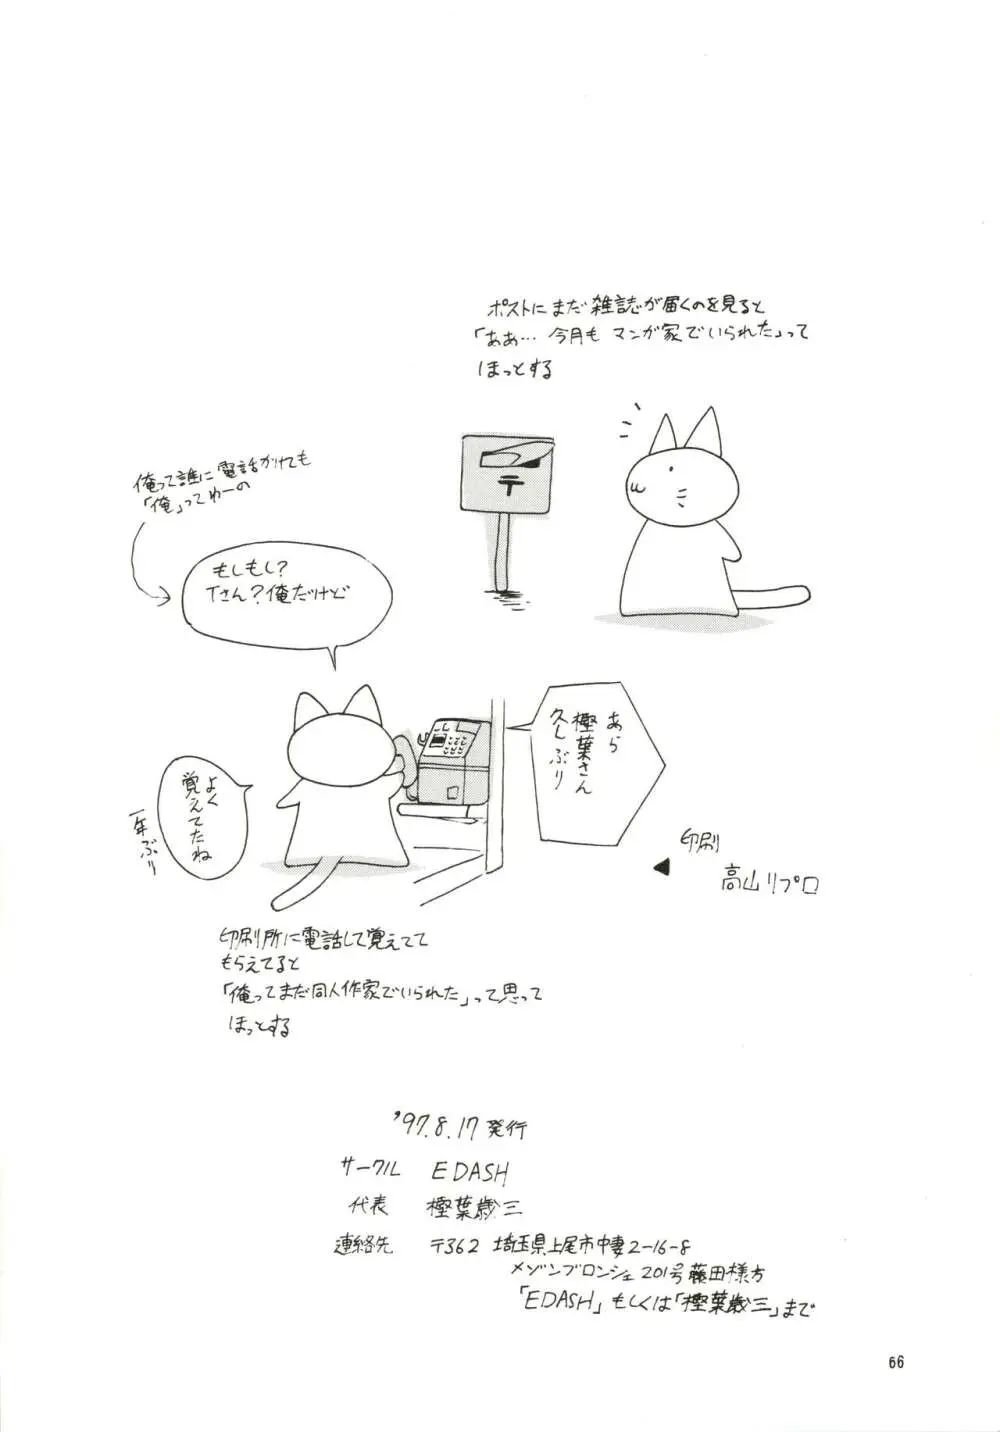 ポストにまだ雑誌が届くのを見ると
「ああ… 今月も マンガ家でいられた」って
ほっとする
〒
俺って誰に電話かけても
「俺」ってゆーの
もしもし?
Tさん?俺だけど
あら
樫葉さん
久しぶり
よく
覚えてたね
一年ぶり
印刷
高山リプロ
印刷所に電話して覚えてて
もらえてると
「俺ってまだ同人作家でいられた」って思って
ほっとする
'97.8.17 発行
サークル EDASH
代表 樫葉歳三
連絡先 〒362 埼玉県上尾市中妻2-16-8
メゾンブロンシェ201号藤田様方
「EDASH」もしくは「樫葉歳三」まで
66